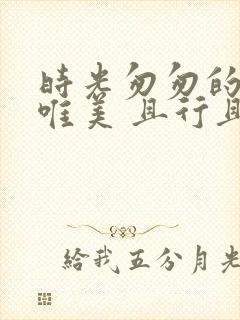 時光匆匆的
唯美 且行且
給我五分月光